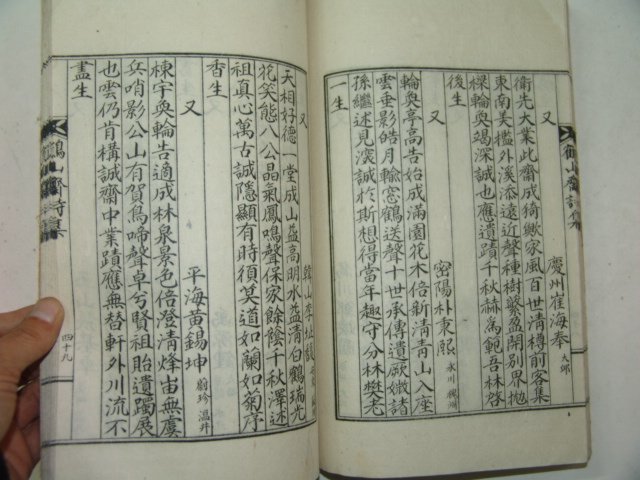 慶州崔海奉 大邱
衛先大業此齋成猗歟家風百世清樽前客集
東南美檻外溪添遠近聲種樹繁盈開別界拋
樑輪奐竭深誠也應遺蹟千秋赫爲範吾林啓
後生
又 密陽朴秉熙 永川
輪奐辜高告始成滿園花木倍新清靑山入座
雲垂影皓月輪窓鶴送聲十世承傳遺厥嫩諸
孫繼述見濃誠於斯想得當年趣守分林樊老
一生
又
天相好德一堂成山益高明水益清白鶴瑞光
花笑態八公晶氣鳳鳴聲保家餘蔭千秋澤述
祖眞心萬古誠隱顯有時須笑道如蘭如菊序
香生
又 平海黃錫坤 蔚珍 溫井
棟宇奐輪告適成林泉景色倍澄清烽宙無虞
兵哨影公山有賀鳥啼聲卓兮賢祖貽遺躅展
也雲仍肯構誠齋中業蹟應無替軒外川流不
盡生
鶴山齋詩集
四十九